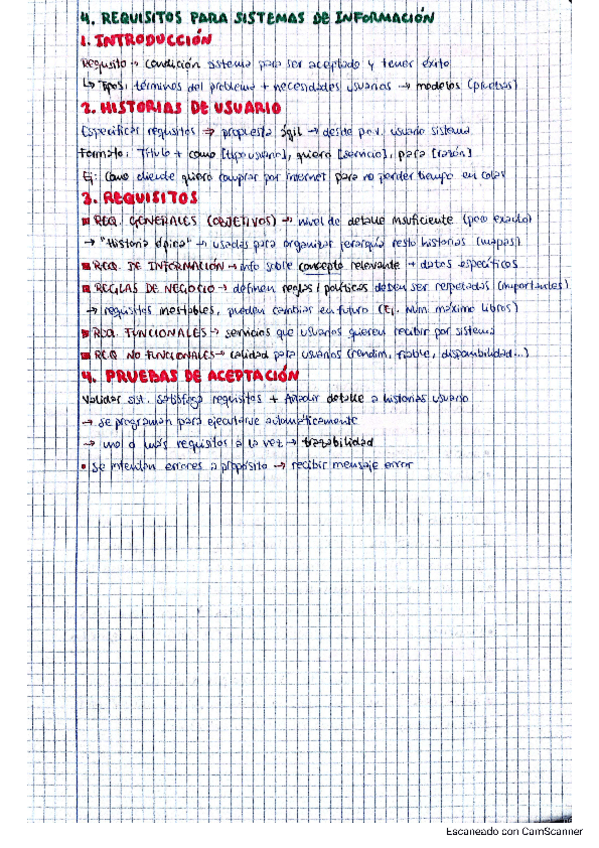 4. REQUISITOS PARA SISTEMAS DE INFORMACIÓN
1. INTRODUCCIÓN
Requisito → condición sistema para ser aceptado y tener éxito
↳ Tipos: términos del problema + necesidades usuarios → modelos (pruebas)
2. HISTORIAS DE USUARIO
Especificar requisitos ⇒ propuesta ágil → desde p.v. usuario sistema
Formato: Título + como [tipo usuario], quiero [servicio], para [razón]
Ej: Como cliente quiero comprar por internet para no perder tiempo en colas
3. REQUISITOS
■ REQ. GENERALES (OBJETIVOS) → nivel de detalle insuficiente (poco exacto)
→ "Historia épica" → usadas para organizar jerarquía resto historias (mapas)
■ REQ. DE INFORMACIÓN → info sobre concepto relevante + datos específicos
■ REGLAS DE NEGOCIO → definen reglas/políticas deben ser respetadas (importantes)
→ requisitos inestables, pueden cambiar en futuro (Ej. Num. máximo libros)
■ REQ. FUNCIONALES → servicios que usuarios quieren recibir por sistema
■ REQ NO FUNCIONALES → calidad para usuarios (rendim, fiable, disponibilidad...)
4. PRUEBAS DE ACEPTACIÓN
Validar sist. satisfaga requisitos + Añadir detalle a historias usuario
→ se programan para ejecutarse automáticamente
→ uno o más requisitos a la vez → trazabilidad
• Se intentan errores a propósito → recibir mensaje error
Escaneado con CamScanner